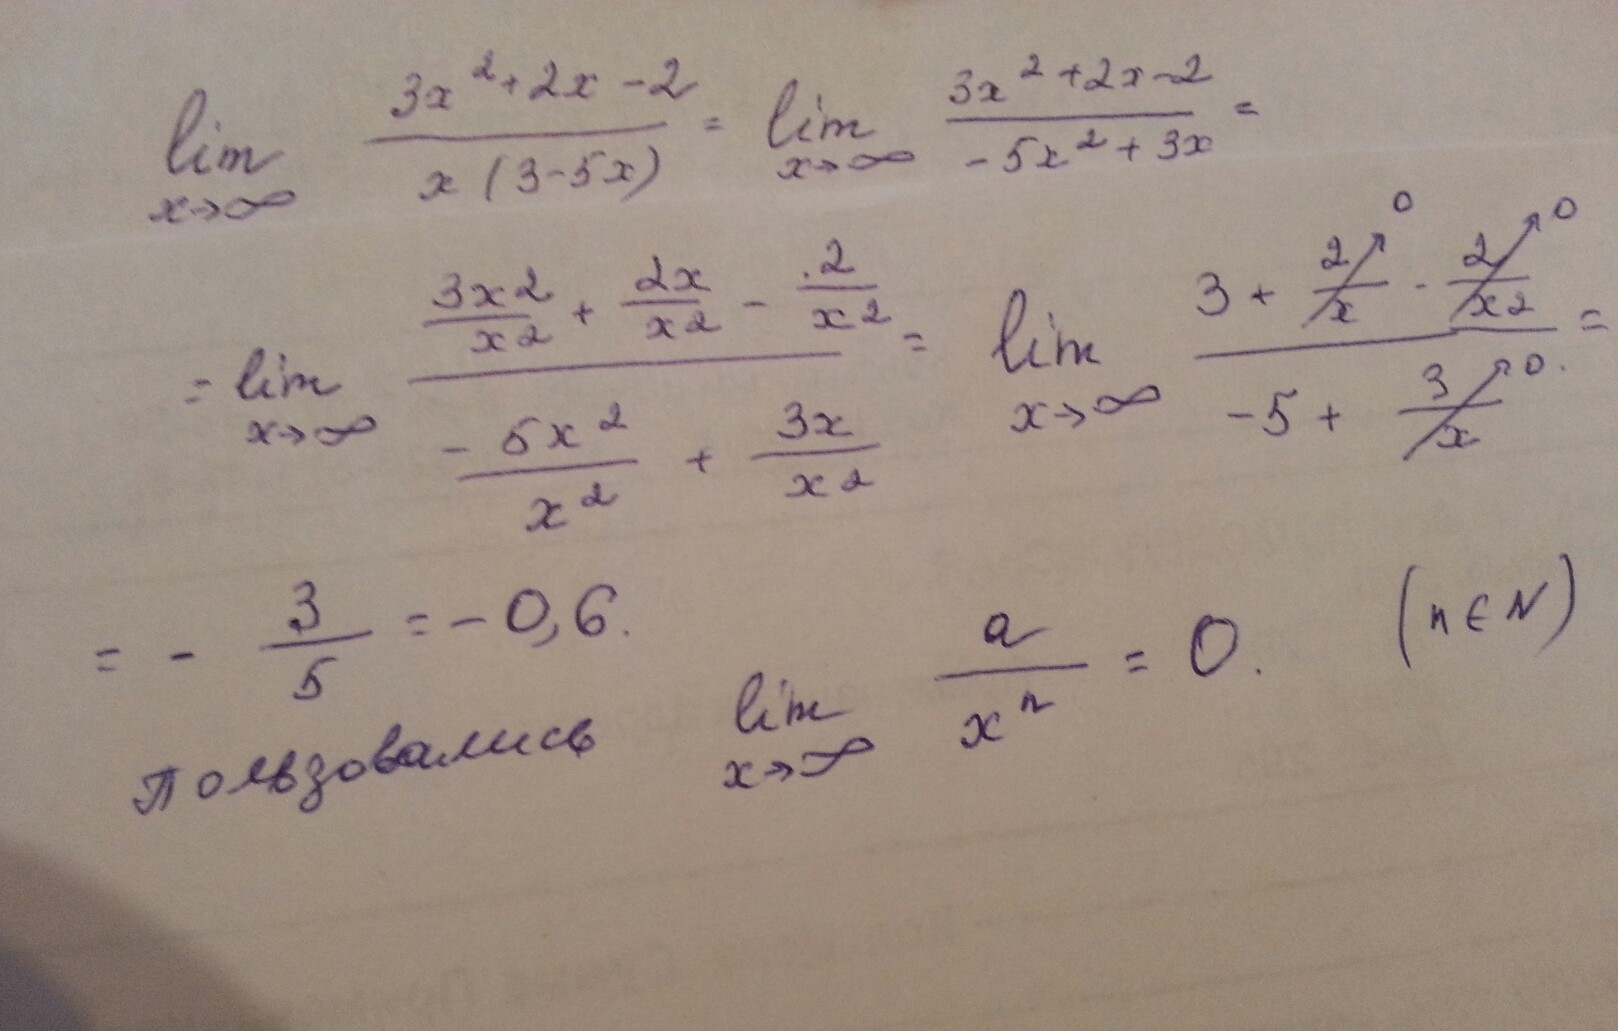 lim x→∞ (3x² + 2x - 2)/(x(3-5x)) = lim x→∞ (3x² + 2x - 2)/(-5x² + 3x) =
= lim x→∞ (3x2/x2 + 2x/x2 - 2/x2)/(-5x²/x² + 3x/x2) = lim x→∞ (3 + 2/x↗0 - 2/x2↗0)/(-5 + 3/x↗0.) =
= - 3/5 = -0,6.
пользовались lim x→∞ a/xⁿ = 0. (n∈N)